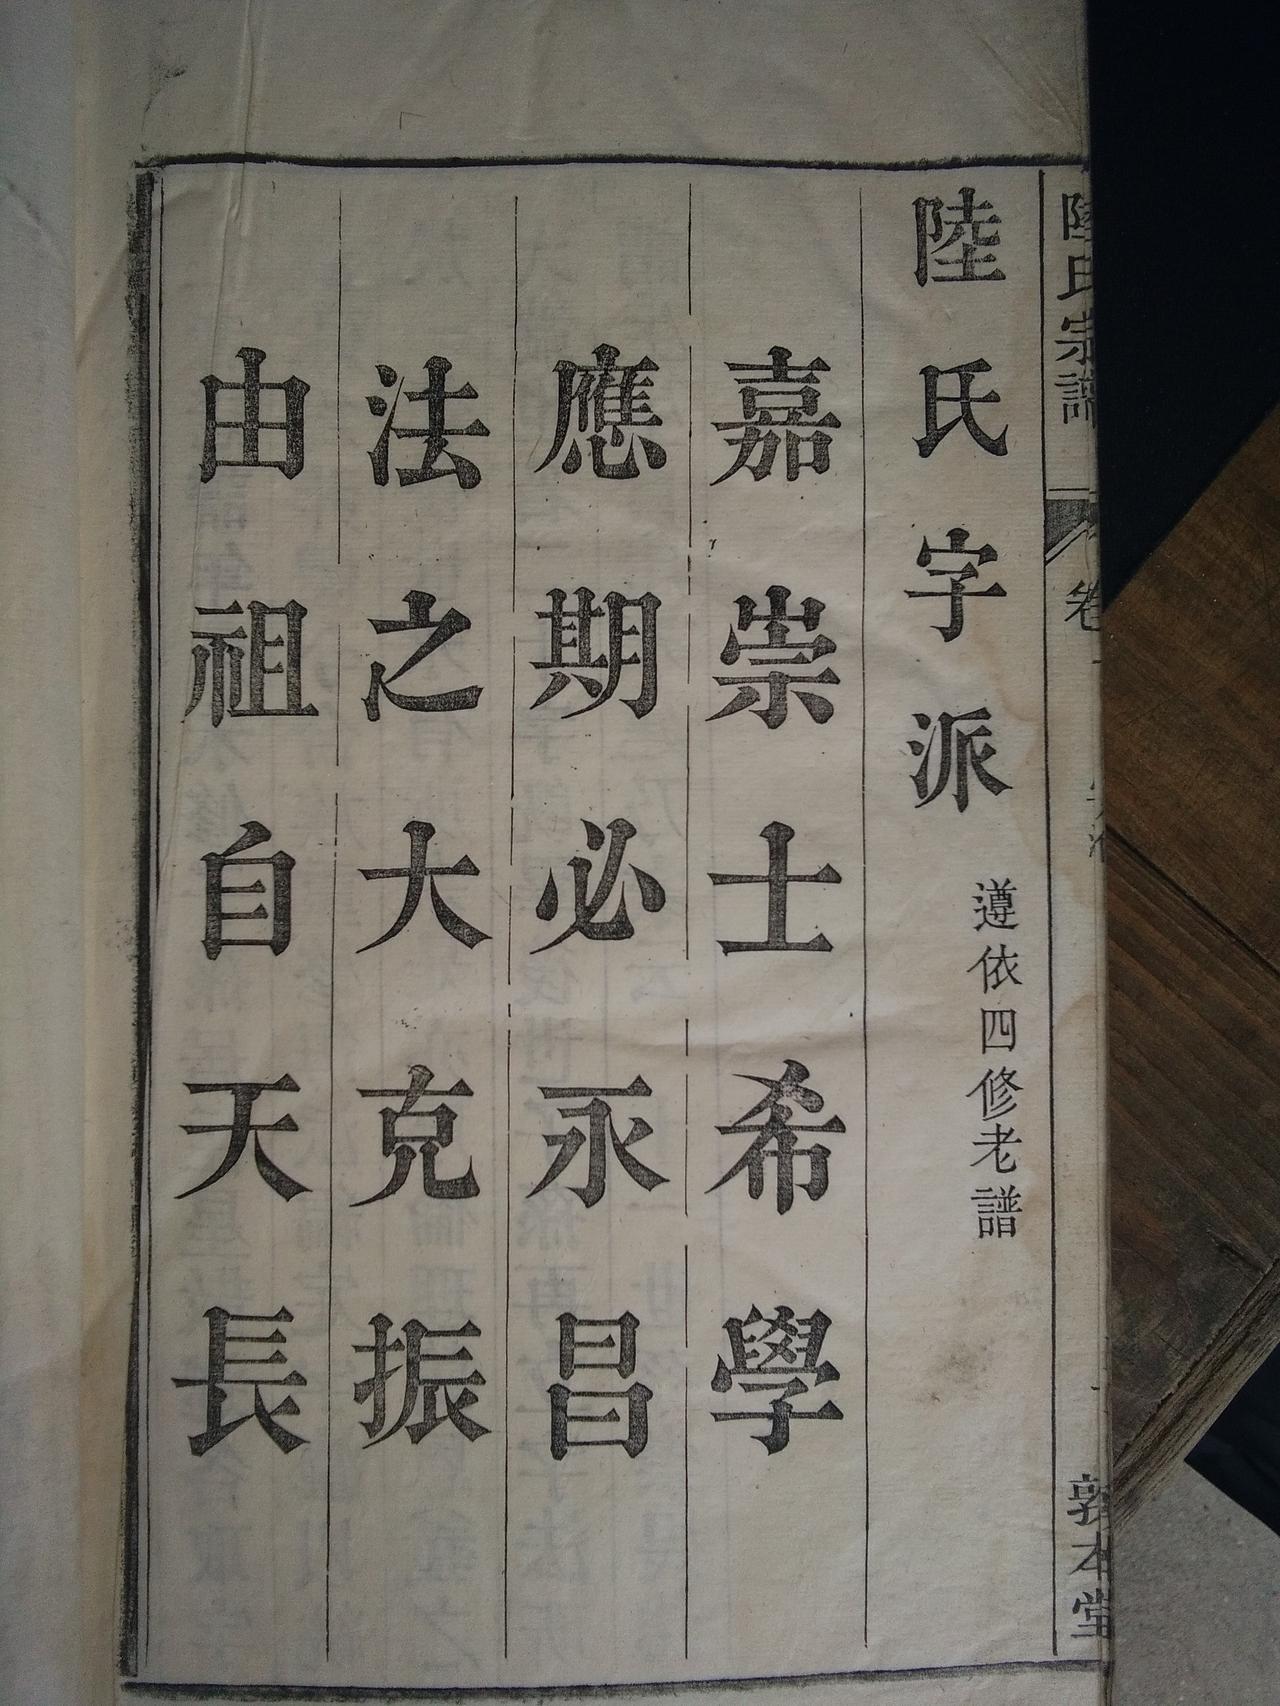 陸氏宗譜
卷
敦本堂
陸氏字派
遵依四修老譜
嘉崇士希學
應期必永昌
法之大克振
由祖自天長